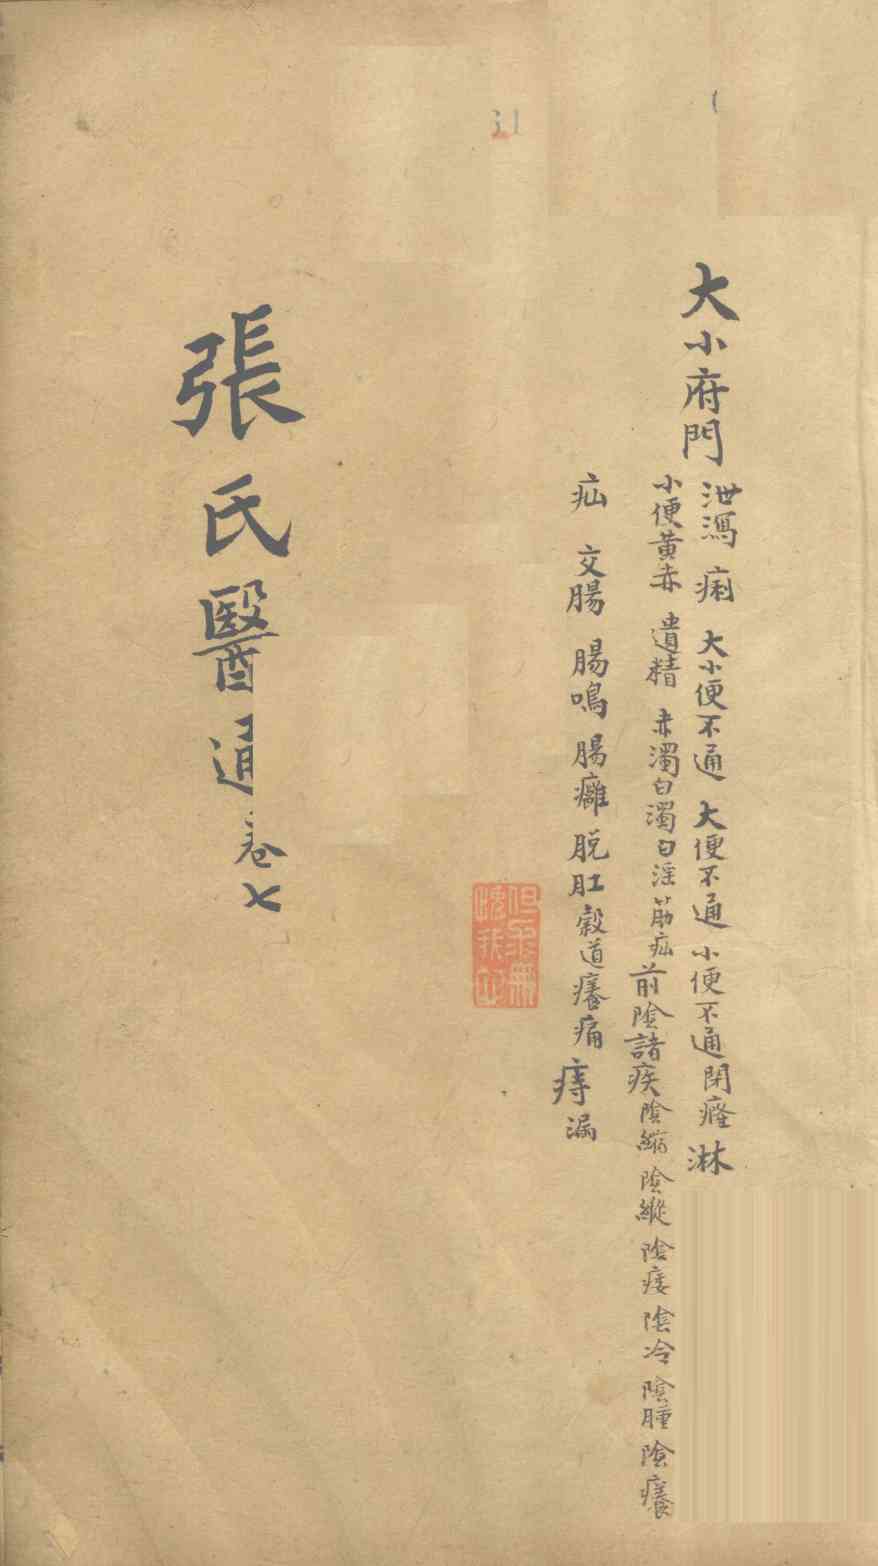 大小府門
泄瀉 痢 大小便不通 大便不通 小便不通 閉癃 淋
小便黃赤 遺精 赤濁白濁白淫 筋疝 前陰諸疾 陰縮 陰縱 陰痿 陰冷 陰腫 陰癢
疝 交腸 腸鳴 腸癰 脫肛 穀道癢痛 痔漏
張氏醫通 卷七